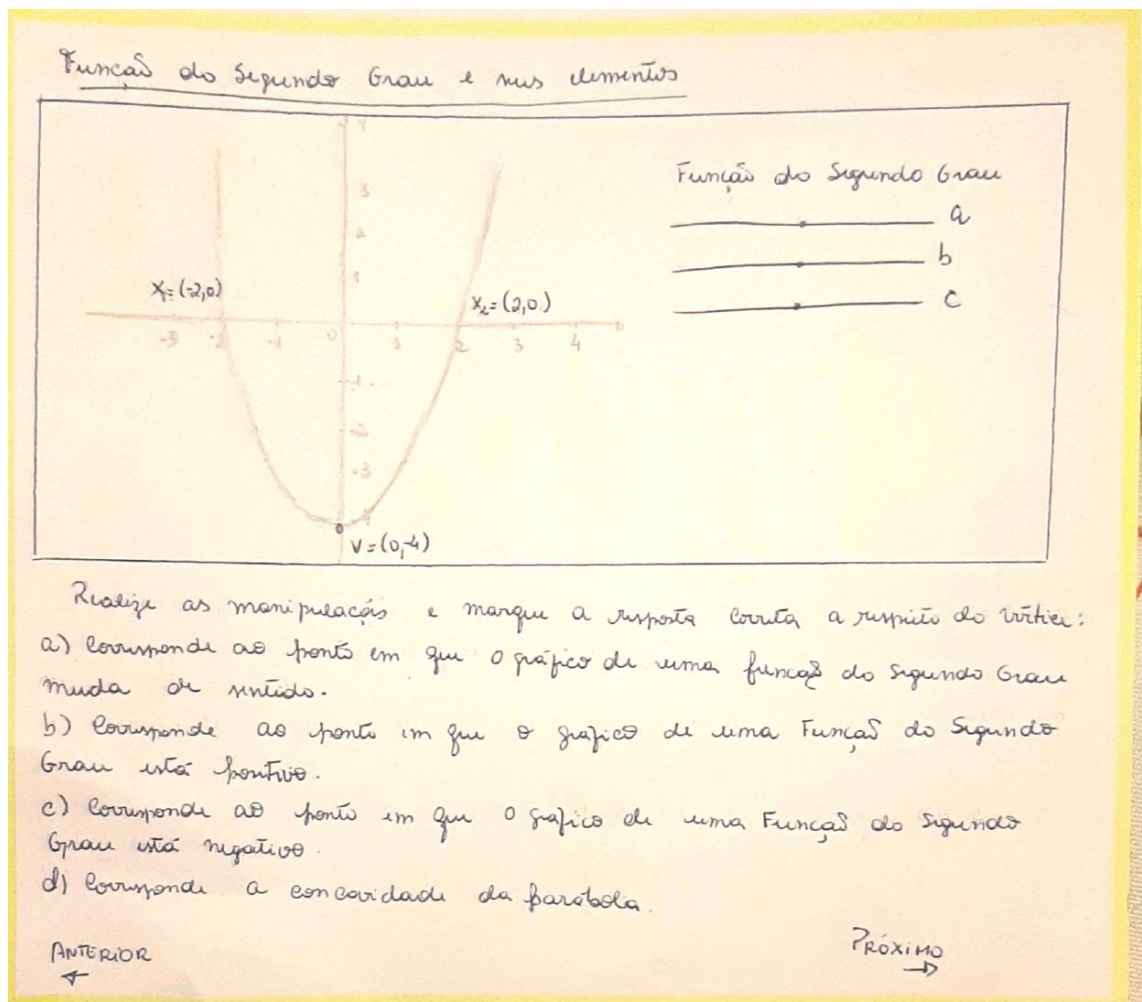 Função do Segundo Grau e seus elementos
Função do Segundo Grau
a
b
c
4
3
2
1
X₁=(-2,0)
X₂=(2,0)
-3 -2 -1 0 1 2 3 4
-1
-2
-3
-4
V=(0,-4)
Realize as manipulações e marque a resposta correta a respeito do vértice:
a) Corresponde ao ponto em que o gráfico de uma função do Segundo Grau
muda de sentido.
b) Corresponde ao ponto em que o gráfico de uma Função do Segundo
Grau está positivo.
c) Corresponde ao ponto em que o gráfico de uma Função do Segundo
Grau está negativo.
d) Corresponde a concavidade da parábola.
ANTERIOR
PRÓXIMO